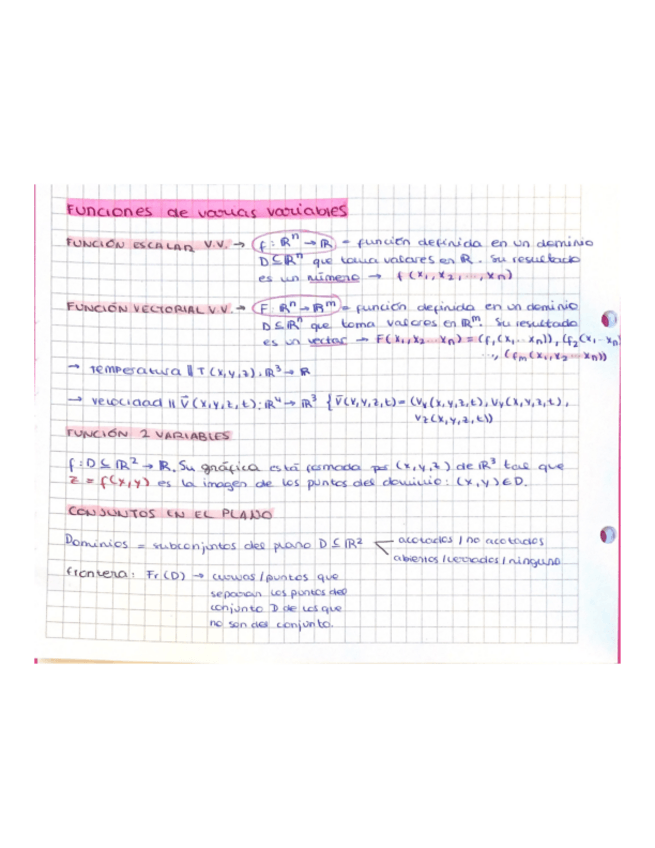 Funciones de varias variables
FUNCIÓN ESCALAR V.V. → f: ℝⁿ → ℝ = función definida en un dominio
D ⊆ ℝⁿ que toma valores en ℝ. Su resultado
es un número → f(x₁, x₂, ..., xₙ)
FUNCIÓN VECTORIAL V.V. → F: ℝⁿ → ℝᵐ = función definida en un dominio
D ⊆ ℝⁿ que toma valores en ℝᵐ. Su resultado
es un vector → F(x₁, x₂ ... xₙ) = (f₁(x₁, ... xₙ)), (f₂(x₁ ... xₙ)
..., (fₘ(x₁, x₂ ... xₙ))
→ Temperatura || T(x,y,z): ℝ³ → ℝ
→ velocidad || V̄(x,y,z,t): ℝ⁴ → ℝ³ { V̄(x,y,z,t) = (Vₓ(x,y,z,t), Vy(x,y,z,t),
Vz(x,y,z,t))
FUNCIÓN 2 VARIABLES
f: D ⊆ ℝ² → ℝ. Su gráfica está formada por (x,y,z) de ℝ³ tal que
z = f(x,y) es la imagen de los puntos del dominio: (x,y) ∈ D.
CONJUNTOS EN EL PLANO
Dominios = subconjuntos del plano D ⊆ ℝ² acotados / no acotados
abiertos / cerrados / ninguno
frontera: Fr(D) → curvas / puntos que
separan los puntos del
conjunto D de los que
no son del conjunto.